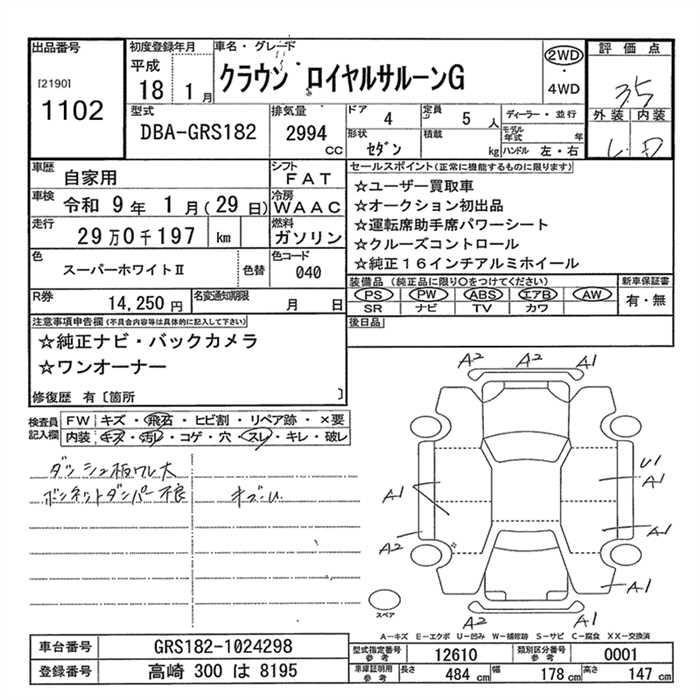 出品番号
[2190]
1102
初度登録年月
平成
18 1月
車名・グレード
クラウン ロイヤルサルーンG
2WD
・
4WD
評価点
3.5
外装 内装
D
型式
DBA-GRS182
排気量
2994 CC
ドア 4
形状 セダン
定員 5人
積載 kg
ディーラー・並行
モデル年式 年
ハンドル 左・右
車歴 自家用
シフト FAT
車検 令和 9年 1月(29日)
冷房 WAAC
走行 29万0千197 km
燃料 ガソリン
色 スーパーホワイトⅡ
色替
色コード 040
R券 14,250円
名変通知期限 月 日
セールスポイント(正常に機能するものに限ります)
☆ユーザー買取車
☆オークション初出品
☆運転席助手席パワーシート
☆クルーズコントロール
☆純正16インチアルミホイール
装備品(純正品に限り○をつけてください)
PS PW ABS エアB AW
SR ナビ TV カワ
新車保証書
有・無
後日品
注意事項申告欄(不具合内容等は具体的に記入して下さい)
☆純正ナビ・バックカメラ
☆ワンオーナー
修復歴 有〔箇所 〕
検査員記入欄
FW キズ・飛石・ヒビ割・リペア跡・×要
内装 キズ・汚レ・コゲ・穴・スレ・キレ・破レ
ダッシュ板ワレ大
ボンネットダンパー不良
A2 A2 A1
A1
U1
A1
A2
A1
A1
A2 A2 A1
スペア
A-キズ E-エクボ U-凹み W-補修跡 S-サビ C-腐食 XX-交換済
車台番号 GRS182-1024298
登録番号 高崎 300 は 8195
型式指定番号参考 12610
類別区分番号参考 0001
車庫証明用参考 長さ 484 cm 幅 178 cm 高さ 147 cm